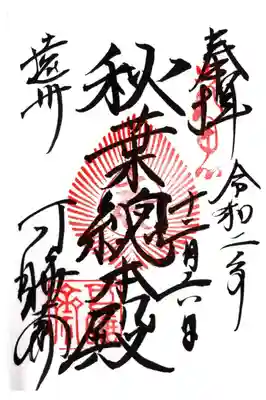 奉拝
令和二年
十二月十六日
秋葉總本殿
遠州
可睡斎